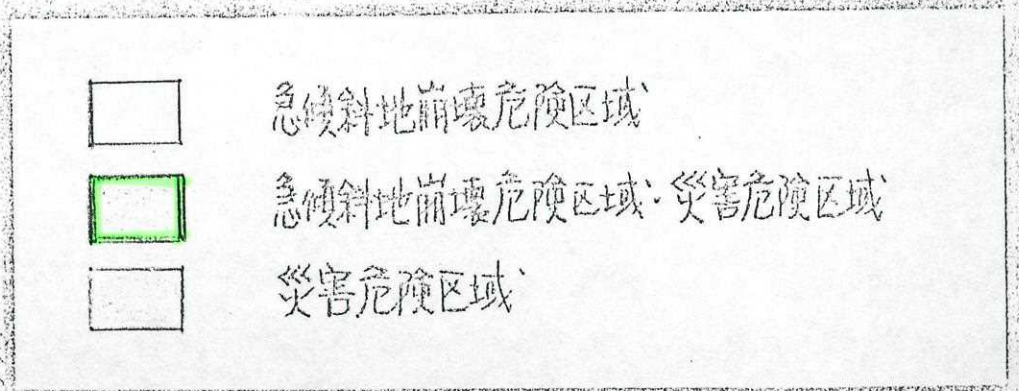 急傾斜地崩壊危険区域
急傾斜地崩壊危険区域・災害危険区域
災害危険区域